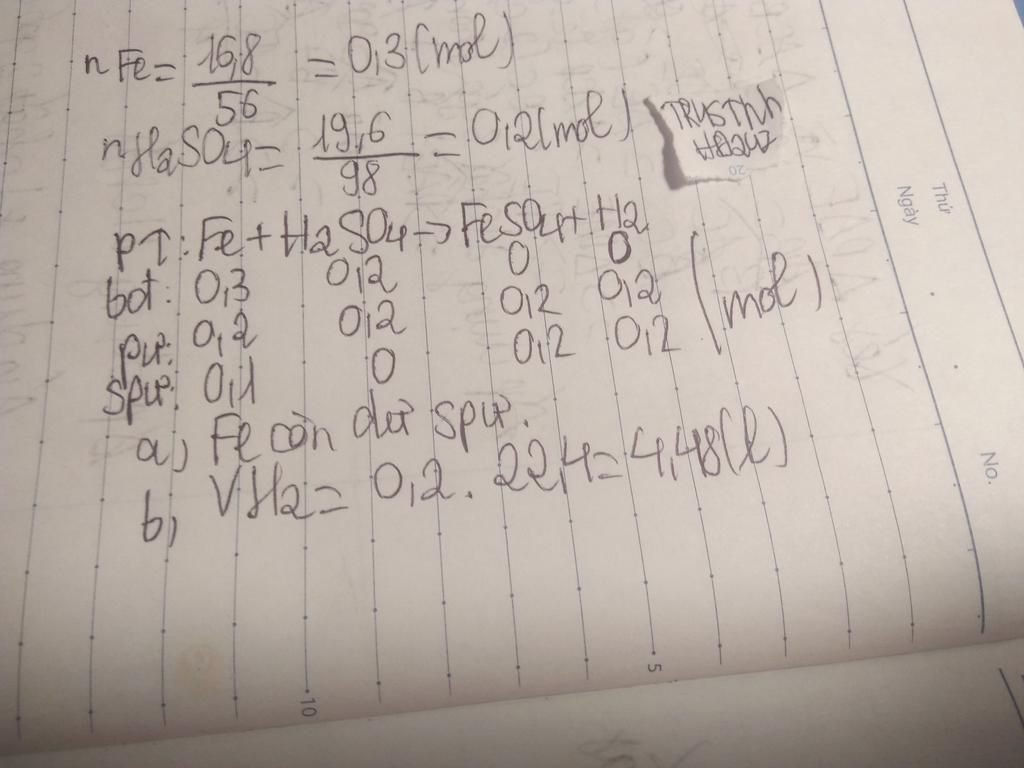 nFe = 16,8 / 56 = 0,3 (mol)
nH2SO4 = 19,6 / 98 = 0,2 (mol)
pT: Fe + H2SO4 → FeSO4 + H2
bđt: 0,3 0,2 0 0
pư: 0,2 0,2 0,2 0,2 (mol)
spư: 0,1 0 0,2 0,2
a, Fe còn dư spư.
b, VH2 = 0,2 . 22,4 = 4,48 (l)
Thứ
Ngày
No.
20
5
10